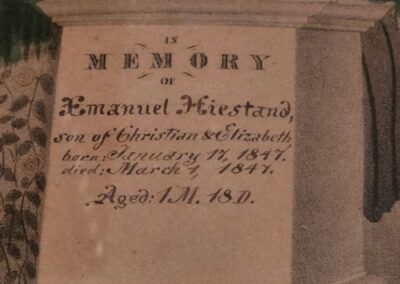 IN
MEMORY
OF
Emanuel Hiestand,
son of Christian & Elizabeth
born: January 17, 1847.
died: March 1, 1847.
Aged: 1 M. 18 D.